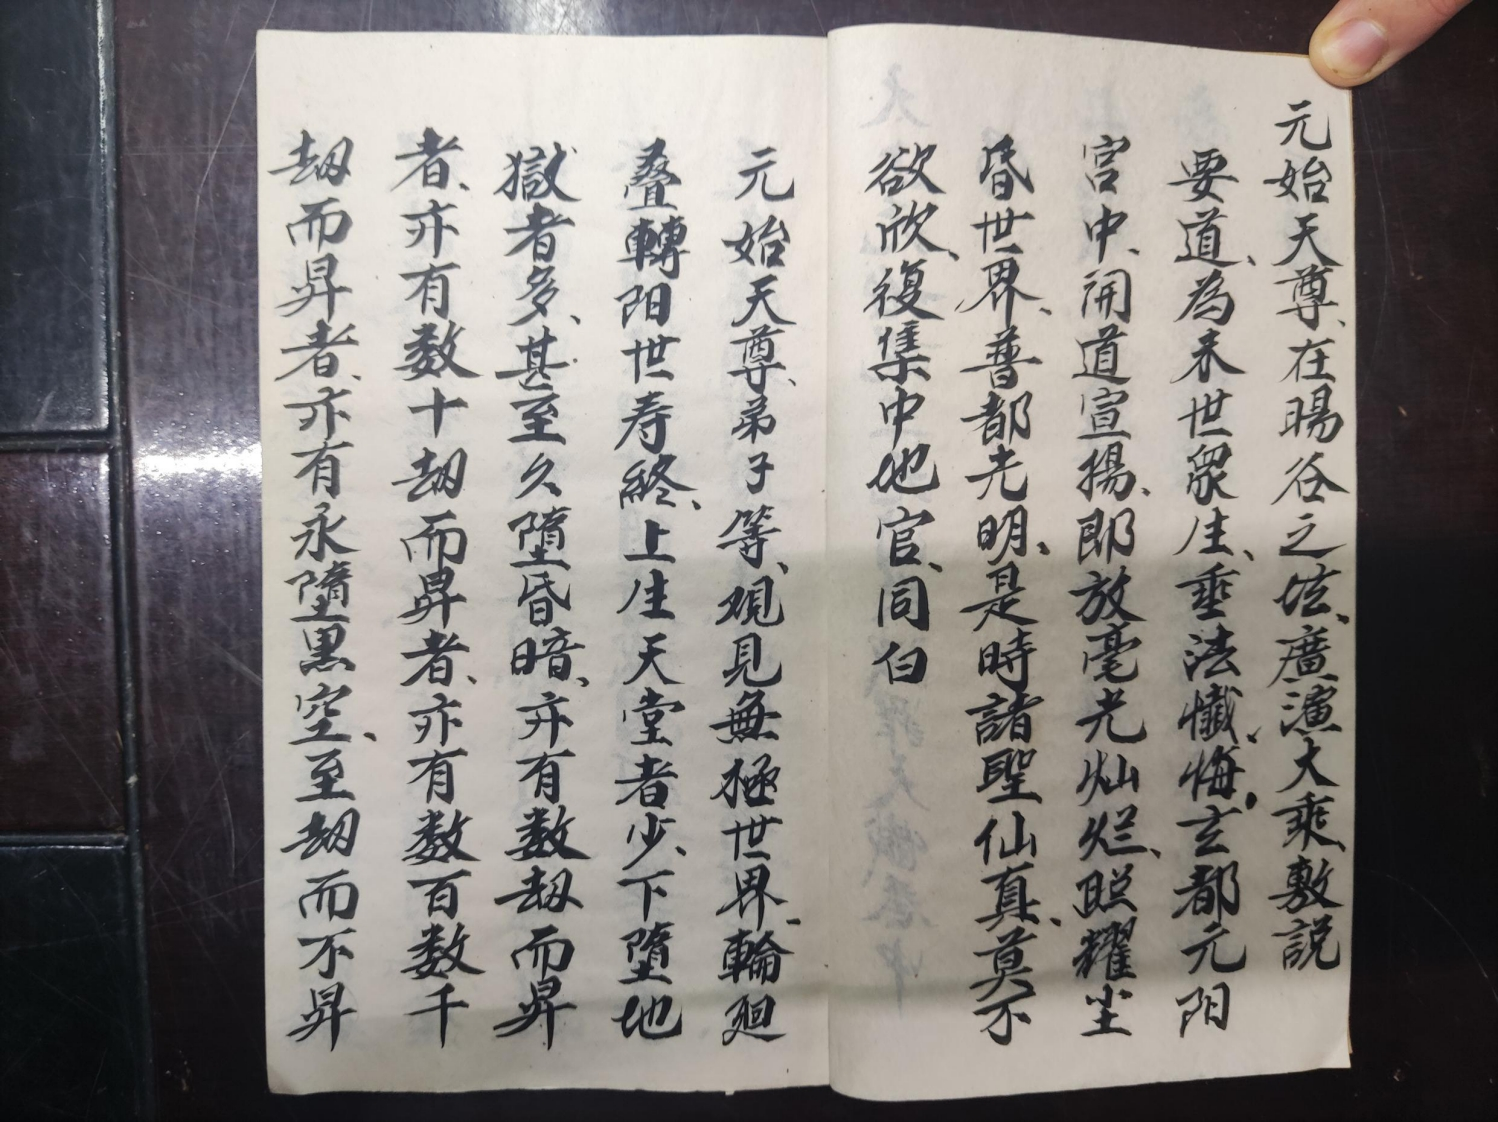 元始天尊、在暘谷之墟、廣演大乘、敷説
要道、為未世眾生、垂法懺悔、玄都元阳
宫中、開道宣揚、即放毫光灿烂、照耀尘
昏世界、普都光明、是時諸聖仙真、莫不
欲欣、復集中地官、同白
元始天尊、弟子等、观見無極世界、輪廻
叠轉阳世寿終、上生天堂者少、下墮地
獄者多、甚至久墮昏暗、亦有数劫而昇
者、亦有数十劫而昇者、亦有数百数千
劫而昇者、亦有永墮黒空、至劫而不昇